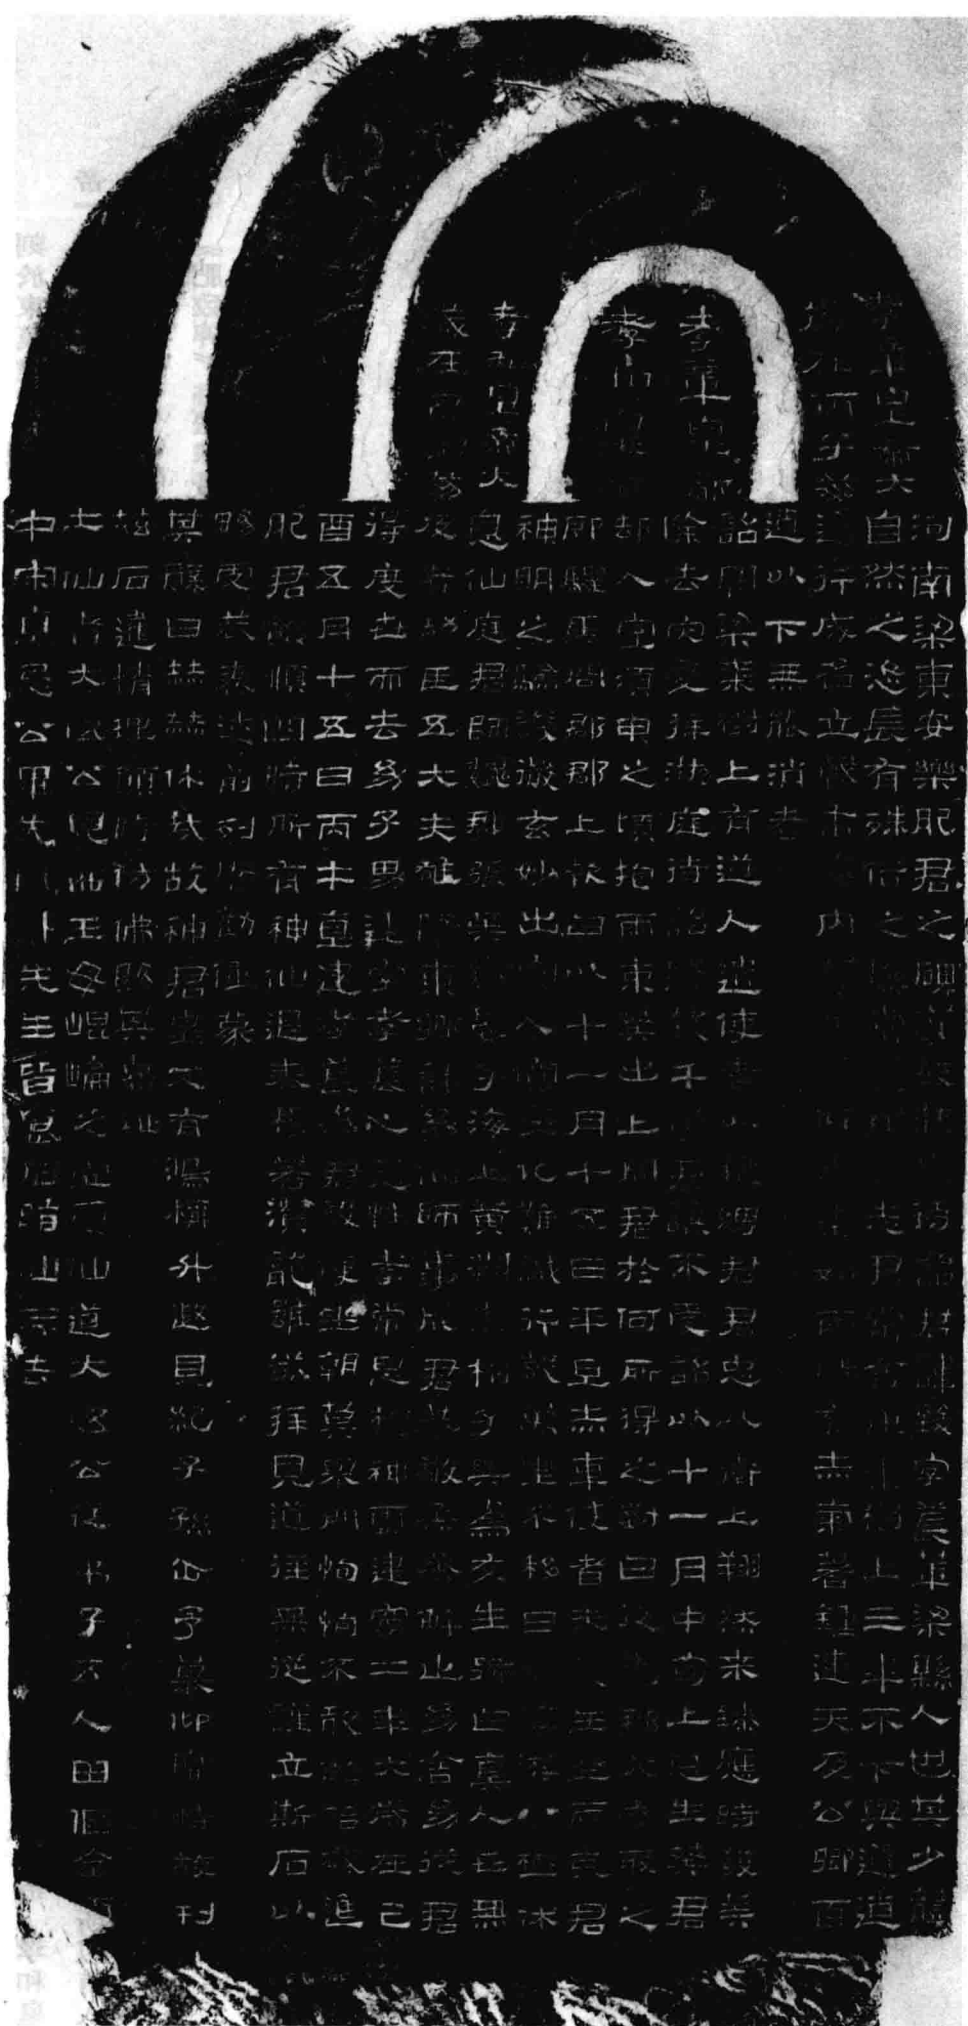 孝章皇帝大
孝章皇帝
孝和皇帝
孝和皇帝大
歲在
河南梁東安樂肥君之碑漢故掖庭待詔君諱致字萇華梁縣人也其少體
自然之恣長有殊俗之操常隱居養志君常舍止棗樹上三年不下與道逍
遙行成名立聲布海內群士欽仰來集如雲時有赤氣著鐘連天及公卿百
遼以下無能消者
詔聞梁棗樹上有道人遣使者以禮聘君君忠以衛上翔然來臻應時發算
除去災變拜掖庭待詔賜錢千萬君讓不受詔以十一月中旬上思生葵君
却入室須臾之頃抱兩束葵出上問君於何所得之對曰從蜀郡太守取之
即驛馬問郡郡上報曰以十一月十五日平旦赤車使者來發生葵兩束君
神明之驗譏徹玄妙出窈入冥變化難識行數萬里不移日時浮游八極休
息仙庭君師魏郡張吳齊晏子海上黃淵赤松子與為友生號曰真人世無
及者功臣五大夫雒陽東鄉許幼仰師事肥君恭敬烝烝解止幼舍幼從君
得度世而去幼子男建字孝萇心慈性孝常思想神靈建寧二年大歲在己
酉五月十五日丙午直建孝萇為君設便坐朝莫舉門恂恂不敢解殆敬進
肥君餟順四時所有神仙退泰穆若潛龍雖欲拜見道徑無從謹立斯石以
暢虔恭表述前列啟勸僮蒙
其辭曰赫赫休哉故神君皇又有鴻稱升遐見紀子孫企予慕仰靡恃故刊
茲石達情理願時仿佛賜其嘉祉
土仙者大伍公見西王母崐崙之虛受仙道大伍公從弟子五人田傴全
中宋直忌公畢先風許先生皆食石脂仙而去